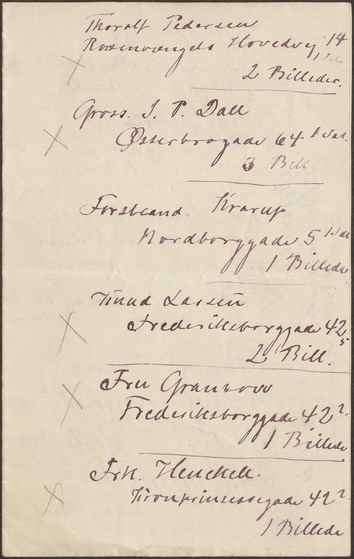 Thoralf Pedersen
Rosenvængets Hovedvej 14
1 Sal
2 Billeder.
Gross. I. P. Dall
Østerbrogade 64 1 Sal.
3 Bill
Forstcand. Krarup
Nordborggade 5 1 Sal
1 Billede
Knud Larsen
Frederiksborggade 42
5
2 Bill.
Fru Grauhow
Frederiksborggade 42 2
1 Billede
Frk. Henckell.
Kronprinsessegade 42 2
1 Billede